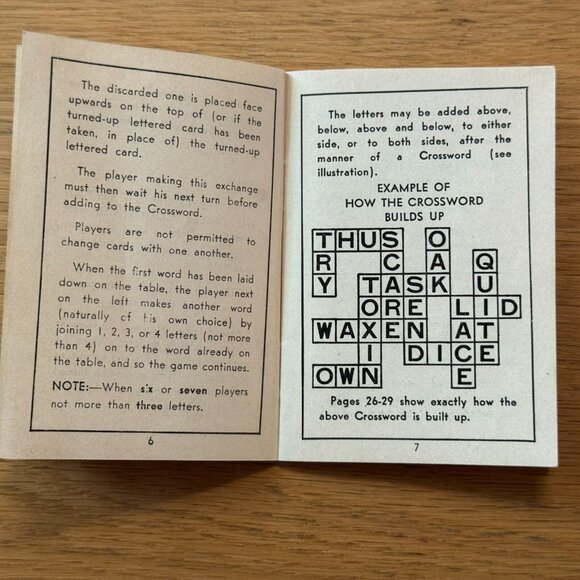 The discarded one is placed face
upwards on the top of (or if the
turned-up lettered card has been
taken, in place of) the turned-up
lettered card.
The player making this exchange
must then wait his next turn before
adding to the Crossword.
Players are not permitted to
change cards with one another.
When the first word has been laid
down on the table, the player next
on the left makes another word
(naturally of his own choice) by
joining 1, 2, 3, or 4 letters (not more
than 4) on to the word already on
the table, and so the game continues.
NOTE:—When six or seven players
not more than three letters.
6
The letters may be added above,
below, above and below, to either
side, or to both sides, after the
manner of a Crossword (see
illustration).
EXAMPLE OF
HOW THE CROSSWORD
BUILDS UP
THUS O
R C A Q
Y TASK U
ORE LID
WAXEN AT
I DICE
OWN E
Pages 26-29 show exactly how the
above Crossword is built up.
7